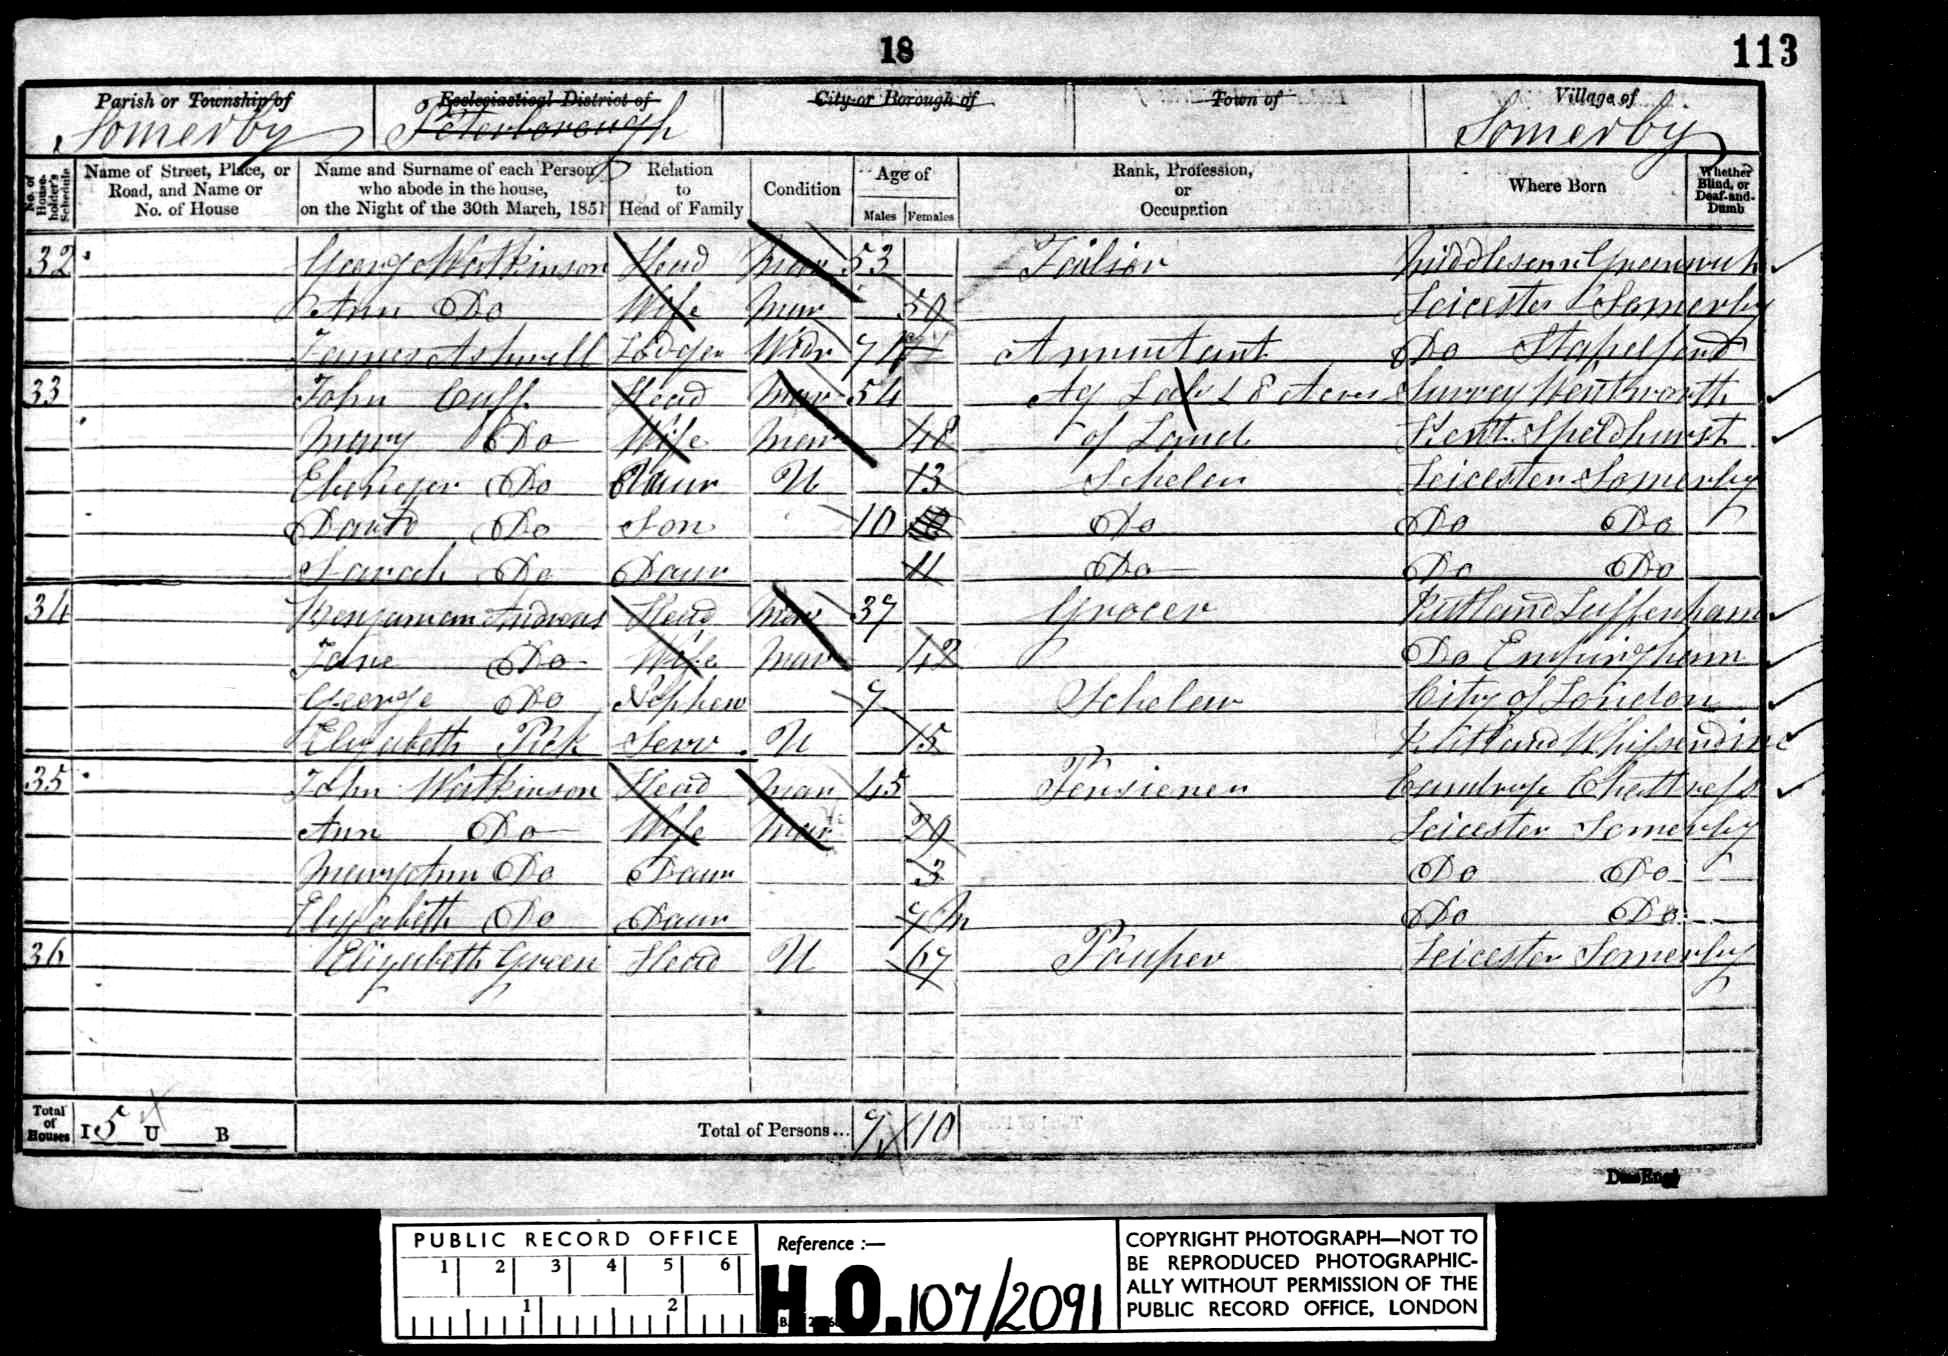 18
113
Parish or Township of
Ecclesiastical District of
City or Borough of
Town of
Village of
Somerby
Peterborough
Somerby
No. of House-holder's Schedule
Name of Street, Place, or Road, and Name or No. of House
Name and Surname of each Person who abode in the house, on the Night of the 30th March, 1851
Relation to Head of Family
Condition
Age of
Males
Females
Rank, Profession, or Occupation
Where Born
Whether Blind, or Deaf-and-Dumb
32 George Watkinson Head Mar 53 Middlesex Greenwich
Ann Do Wife Mar 50 Leicester Somerby
James Ashwell Lodger Widr 74 Annuitant Do Stapelford
33 John Cuff Head Mar 54 Ag Lab & 8 Acres Surrey
Mary Do Wife Mar 48 of Land Kent Speldhurst
Ebenezer Do Daur U 13 Scholer Leicester Somerby
David Do Son 10 Do Do Do
Sarah Do Daur 11 Do Do Do
34 Benjamin Andrews Head Mar 37 Grocer Rutland Luffenham
Jane Do Wife Mar 42 Do Empingham
George Do Nephew 9 Scholar City of London
Elizabeth Pick Serv U 15 Rutland Whissendine
35 John Watkinson Head Mar 45 Pensioner
Ann Do Wife Mar 29 Leicester Somerby
Mary Ann Do Daur 3 Do Do
Elizabeth Do Daur 7 M Do Do
36 Elizabeth Green Head U 67 Pauper Leicester Somerby
Total of Houses
I 5 U B
Total of Persons...
7
10
PUBLIC RECORD OFFICE
1 2 3 4 5 6
1 2
Reference :—
H.O. 107/2091
COPYRIGHT PHOTOGRAPH—NOT TO
BE REPRODUCED PHOTOGRAPHIC-
ALLY WITHOUT PERMISSION OF THE
PUBLIC RECORD OFFICE, LONDON